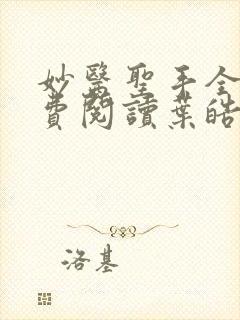 妙醫聖手全
費閱讀葉皓
洛基